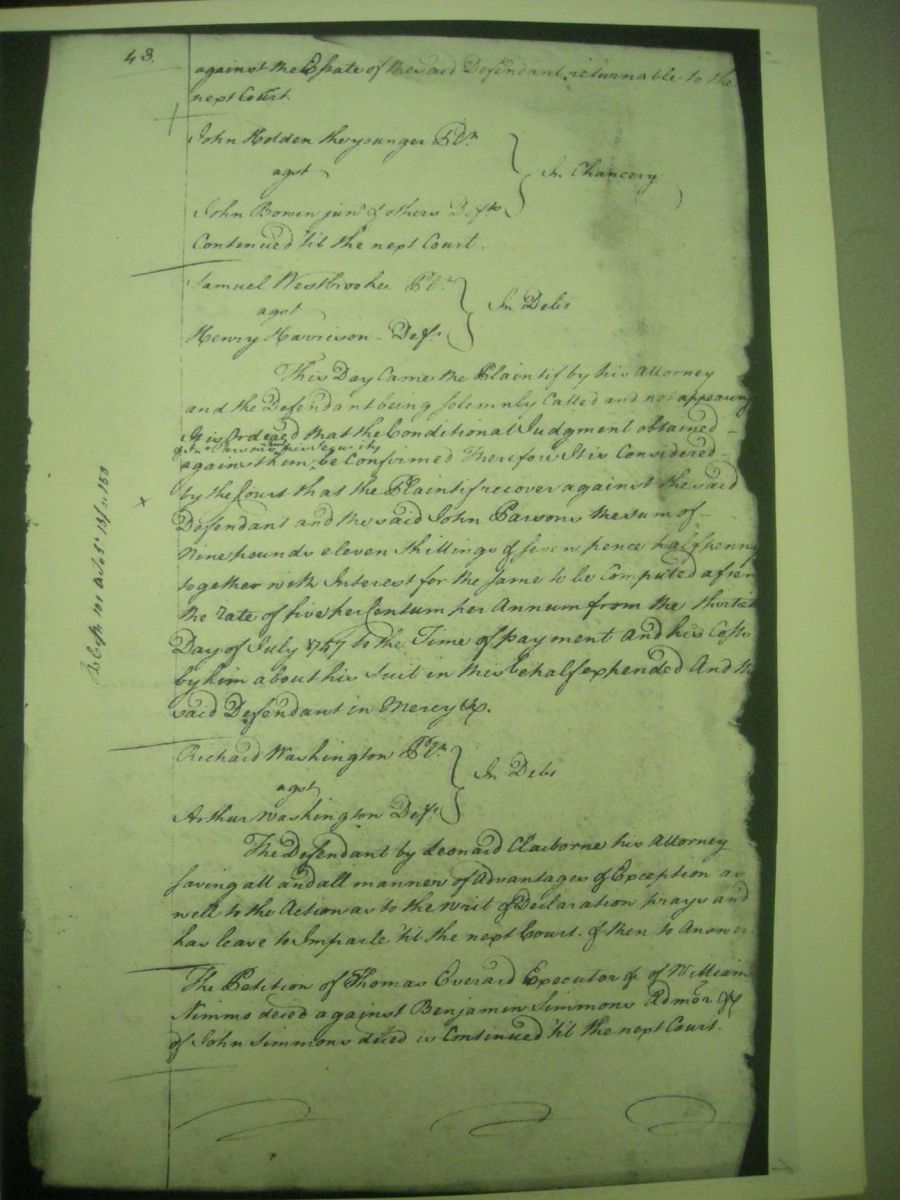 43.
against the Estate of the said Defendant returnable to the
next Court.
John Holden the younger Pl.
agst
John Bowin junr & others Defts
In Chancery
Continued 'til the next Court.
Samuel Westbrooke Pl.
agst
Henry Harrison Deft
In Debt
This Day Came the Plaintif by his Attorney
and the Defendant being Solemnly Called and not appearing
It is Ordered that the Conditional Judgment obtained
& Jno Parsons his Security
against them be Confirmed Therefore It is Considered
by the Court that the Plaintif recover against the said
Defendant and the said John Parsons the sum of
Nine pounds eleven Shillings & seven pence halfpenny
together with Interest for the same to be Computed after
the rate of five per Centum per Annum from the
Day of July 1747 to the Time of payment and his Costs
by him about his Suit in this behalf expended And the
said Defendant in Mercy &c.
Richard Washington Pl.
agst
Arthur Washington Deft
In Debt
The Defendant by Leonard Claiborne his Attorney
saving all and all manner of Advantages of Exception as
well to the Action as to the Writ & Declaration prays and
has leave to Imparle 'til the next Court & then to Answer
The Petition of Thomas Everard Executor &c of William
Nimms deced against Benjamin Simmons Admor &c
of John Simmons deced is Continued 'til the next Court.